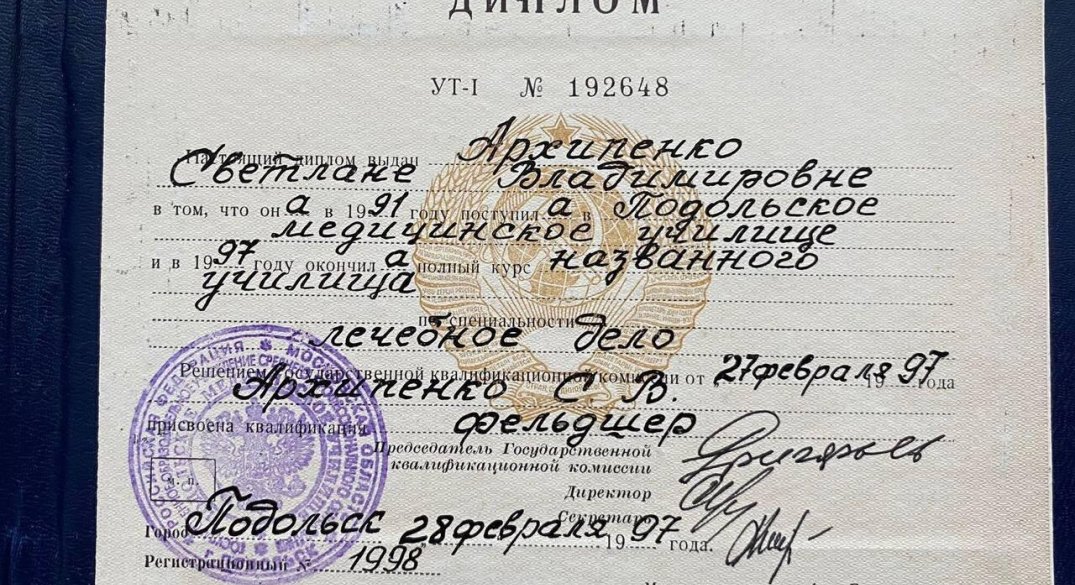 ДИПЛОМ
УТ-I № 192648
Настоящий диплом выдан Архипенко
Светлане Владимировне
в том, что он а в 1991 году поступил а в Подольское
медицинское училище
и в 1997 году окончил а полный курс названного
училища
по специальности
лечебное дело
Решением Государственной квалификационной комиссии от 27 февраля 1997 года
Архипенко С. В.
присвоена квалификация фельдшер
Председатель Государственной
квалификационной комиссии
Директор
Секретарь
м. п.
Город Подольск 28 февраля 1997 года.
Регистрационный № 1998
РОССИЙСКАЯ ФЕДЕРАЦИЯ МОСКОВСКАЯ ОБЛАСТЬ